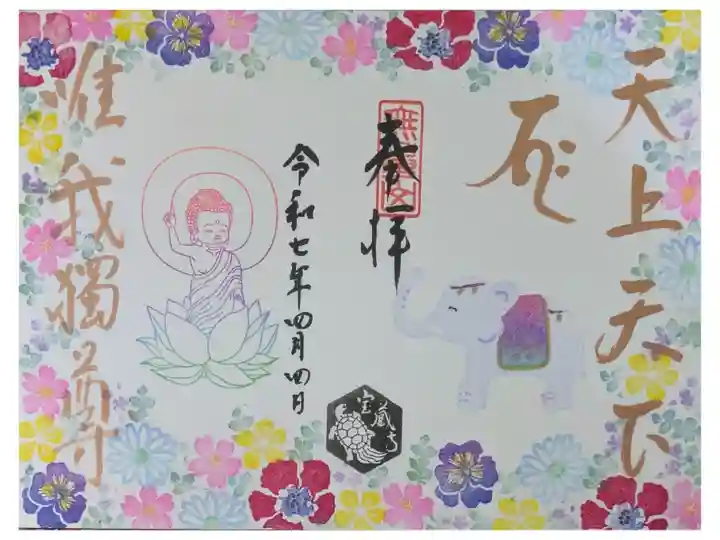 天上天下
奉拝
令和七年四月四日
唯我獨尊
宝蔵寺